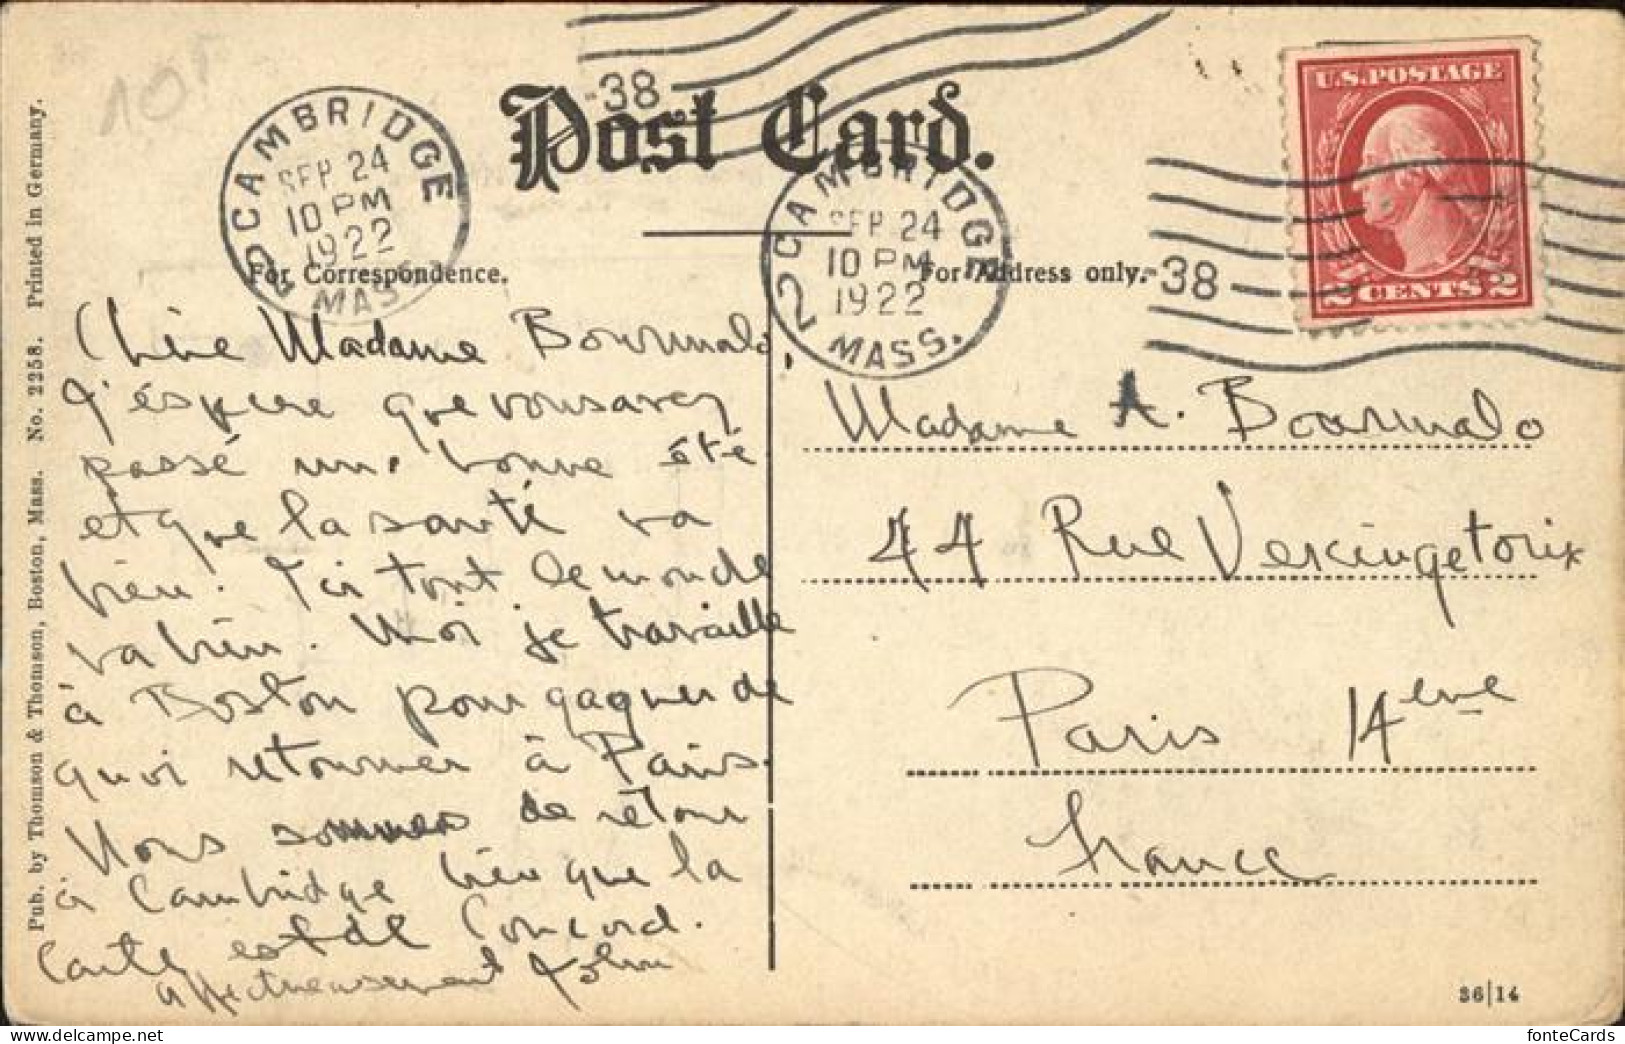 10F
CAMBRIDGE
SEP 24
10 PM
1922
MASS.
2
38
Post Card.
CAMBRIDGE
SEP 24
10 PM
1922
MASS.
2
38
U.S.POSTAGE
2 CENTS 2
For Correspondence.
For Address only.
Pub. by Thomson & Thomson, Boston, Mass. No. 2258. Printed in Germany.
Chère Madame Bourmalo,
J'éspere que vous avez
passé une bonne été
et que la santé va
bien. Ici tout le monde
va bien. Moi je travaille
à Boston pour gagner de
quoi retourner à Paris.
Nous sommes de retour
à Cambridge bien que la
carte est de Concord.
affectueusement John
Madame A. Bourmalo
44 Rue Vercingetorix
Paris 14eme
France
36|14
fonteCards